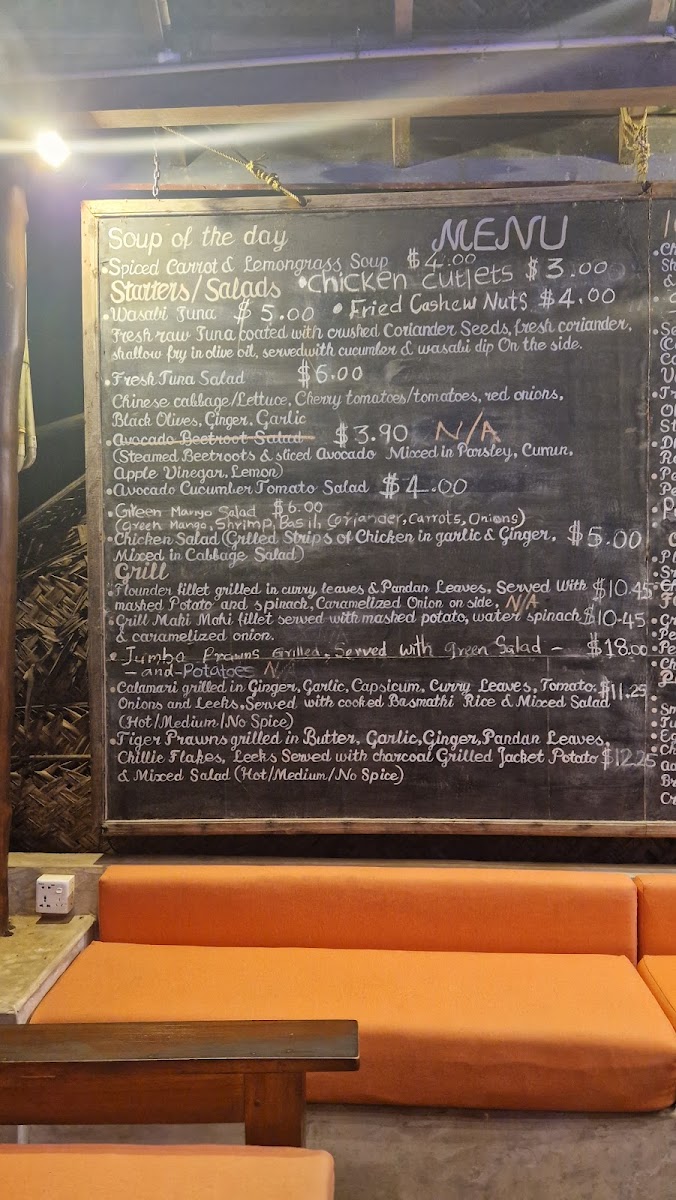 Soup of the day
MENU
•Spiced Carrot & Lemongrass Soup $4.00
Starters/Salads •chicken cutlets $3.00
•Wasabi Tuna $5.00 •Fried Cashew Nuts $4.00
Fresh raw Tuna coated with crushed Coriander Seeds, fresh coriander,
shallow fry in olive oil, served with cucumber & wasabi dip On the side.
•Fresh Tuna Salad $6.00
Chinese cabbage/Lettuce, Cherry tomatoes/tomatoes, red onions,
Black Olives, Ginger, Garlic
•Avocado Beetroot Salad $3.90 N/A
(Steamed Beetroots & sliced Avocado Mixed in Parsley, Cumin,
Apple Vinegar, Lemon)
•Avocado Cucumber Tomato Salad $4.00
•Green Mango Salad $6.00
(Green Mango, Shrimp, Basil, Coriander, Carrots, Onions)
•Chicken Salad (Grilled Strips of Chicken in garlic & Ginger, $5.00
Mixed in Cabbage Salad)
Grill
•Flounder fillet grilled in curry leaves & Pandan Leaves, Served With $10.45
mashed Potato and spinach, Caramelized Onion on side. N/A
•Grill Mahi Mahi fillet served with mashed potato, water spinach $10.45
& caramelized onion.
•Jumbo Prawns Grilled, Served with green Salad - $18.00
- and-Potatoes N/A
•Calamari grilled in Ginger, Garlic, Capsicum, Curry Leaves, Tomato, $11.25
Onions and Leeks, Served with cooked Basmathi Rice & Mixed Salad
(Hot/Medium/No Spice)
•Tiger Prawns grilled in Butter, Garlic, Ginger, Pandan Leaves,
Chillie Flakes, Leeks Served with charcoal Grilled Jacket Potato $12.25
& Mixed Salad (Hot/Medium/No Spice)